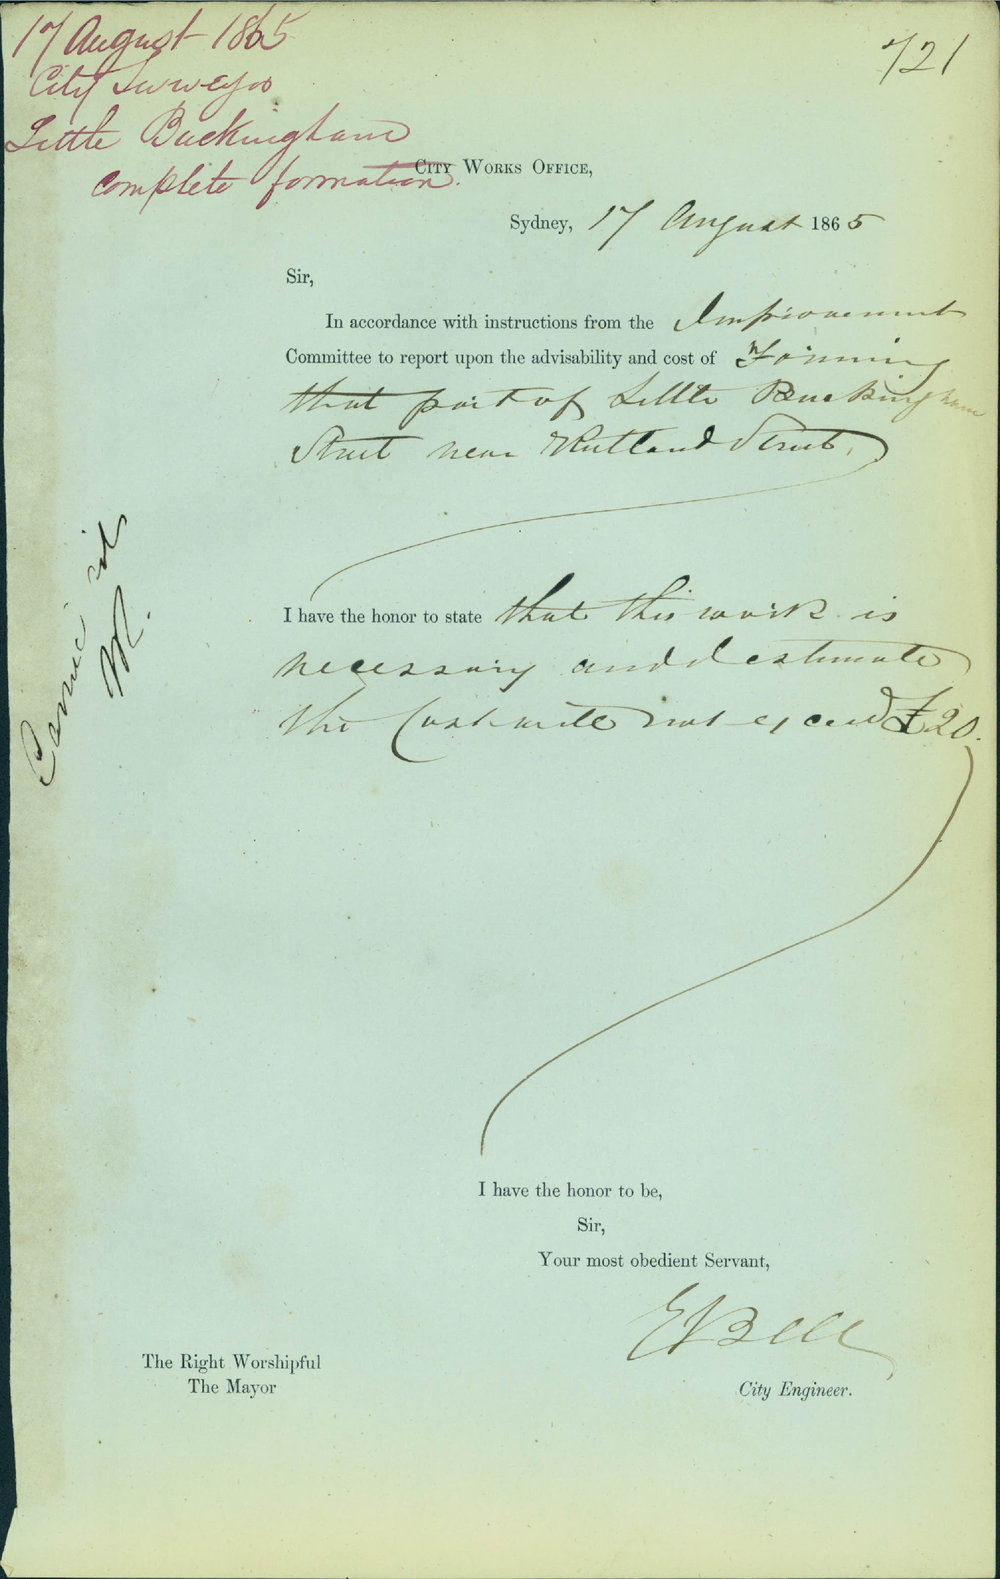 17 August 1865
City Surveyor
Little Buckingham
complete formation.
721
CITY WORKS OFFICE,
Sydney, 17 August 1865
Sir,
In accordance with instructions from the Improvement
Committee to report upon the advisability and cost of Forming
that part of Little Buckingham
Street near Rutland Street.
I have the honor to state that this work is
necessary and I estimate
the Cost will not exceed £20.
Carried
I have the honor to be,
Sir,
Your most obedient Servant,
E Bell
City Engineer.
The Right Worshipful
The Mayor